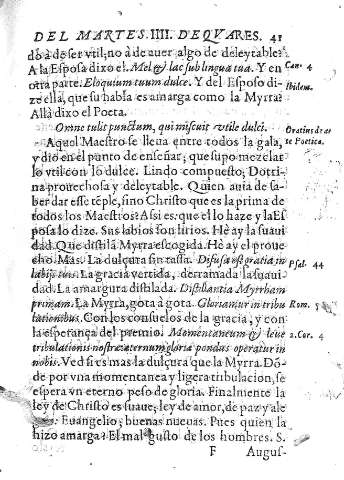 DEL MARTES. IIII. DE QVARES. 41
do à de ser vtil, no à de auer algo de deleytable?
A la Esposa dixo el. Mel & lac sub lingua tua. Y en
Can. 4
otra parte. Eloquium tuum dulce. Y del Esposo di-
ibidem.
ze ella, que su habla es amarga como la Myrra?
Allà dixo el Poeta.
Omne tulit punctum, qui miscuit vtile dulci.
Oratius de ar
te Poetica.
Aquel Maestro se lleua entre todos la gala,
y dio en el punto de enseñar; que supo mezclar
lo vtil con lo dulce. Lindo compuesto; Dottri-
na prouechosa y deleytable. Quien auia de sa-
ber dar esse tẽple, sino Christo que es la prima de
todos los Maestros? Assi es: que el lo haze y la Es
posa lo dize. Sus labios son lirios. Hè ay la suaui
dad. Que distila Myrra escogida. Hè ay el proue
cho. Mas. La dulçura sin tassa. Difusa est gratia in
Psal. 44
labijs tuis. La gracia vertida, derramada la suaui-
dad. La amargura distilada. Distillantia Myrrham
primam. La Myrra, gota à gota. Gloriamur in tribu
Rom. 5
lationibus. Con los consuelos de la gracia, y con
la esperança del premio. Momentaneum & leue
2. Cor. 4
tribulationis nostræ æternum gloriæ pondus operatur in
nobis. Ved si es mas la dulçura que la Myrra. Dõ-
de por vna momentanea y ligera tribulacion, se
espera vn eterno peso de gloria. Finalmente la
ley de Christo es suaue; ley de amor, de paz y ale
Euangelio; buenas nueuas. Pues quien la
hizo amarga? El mal gusto de los hombres. S.
F Augus-